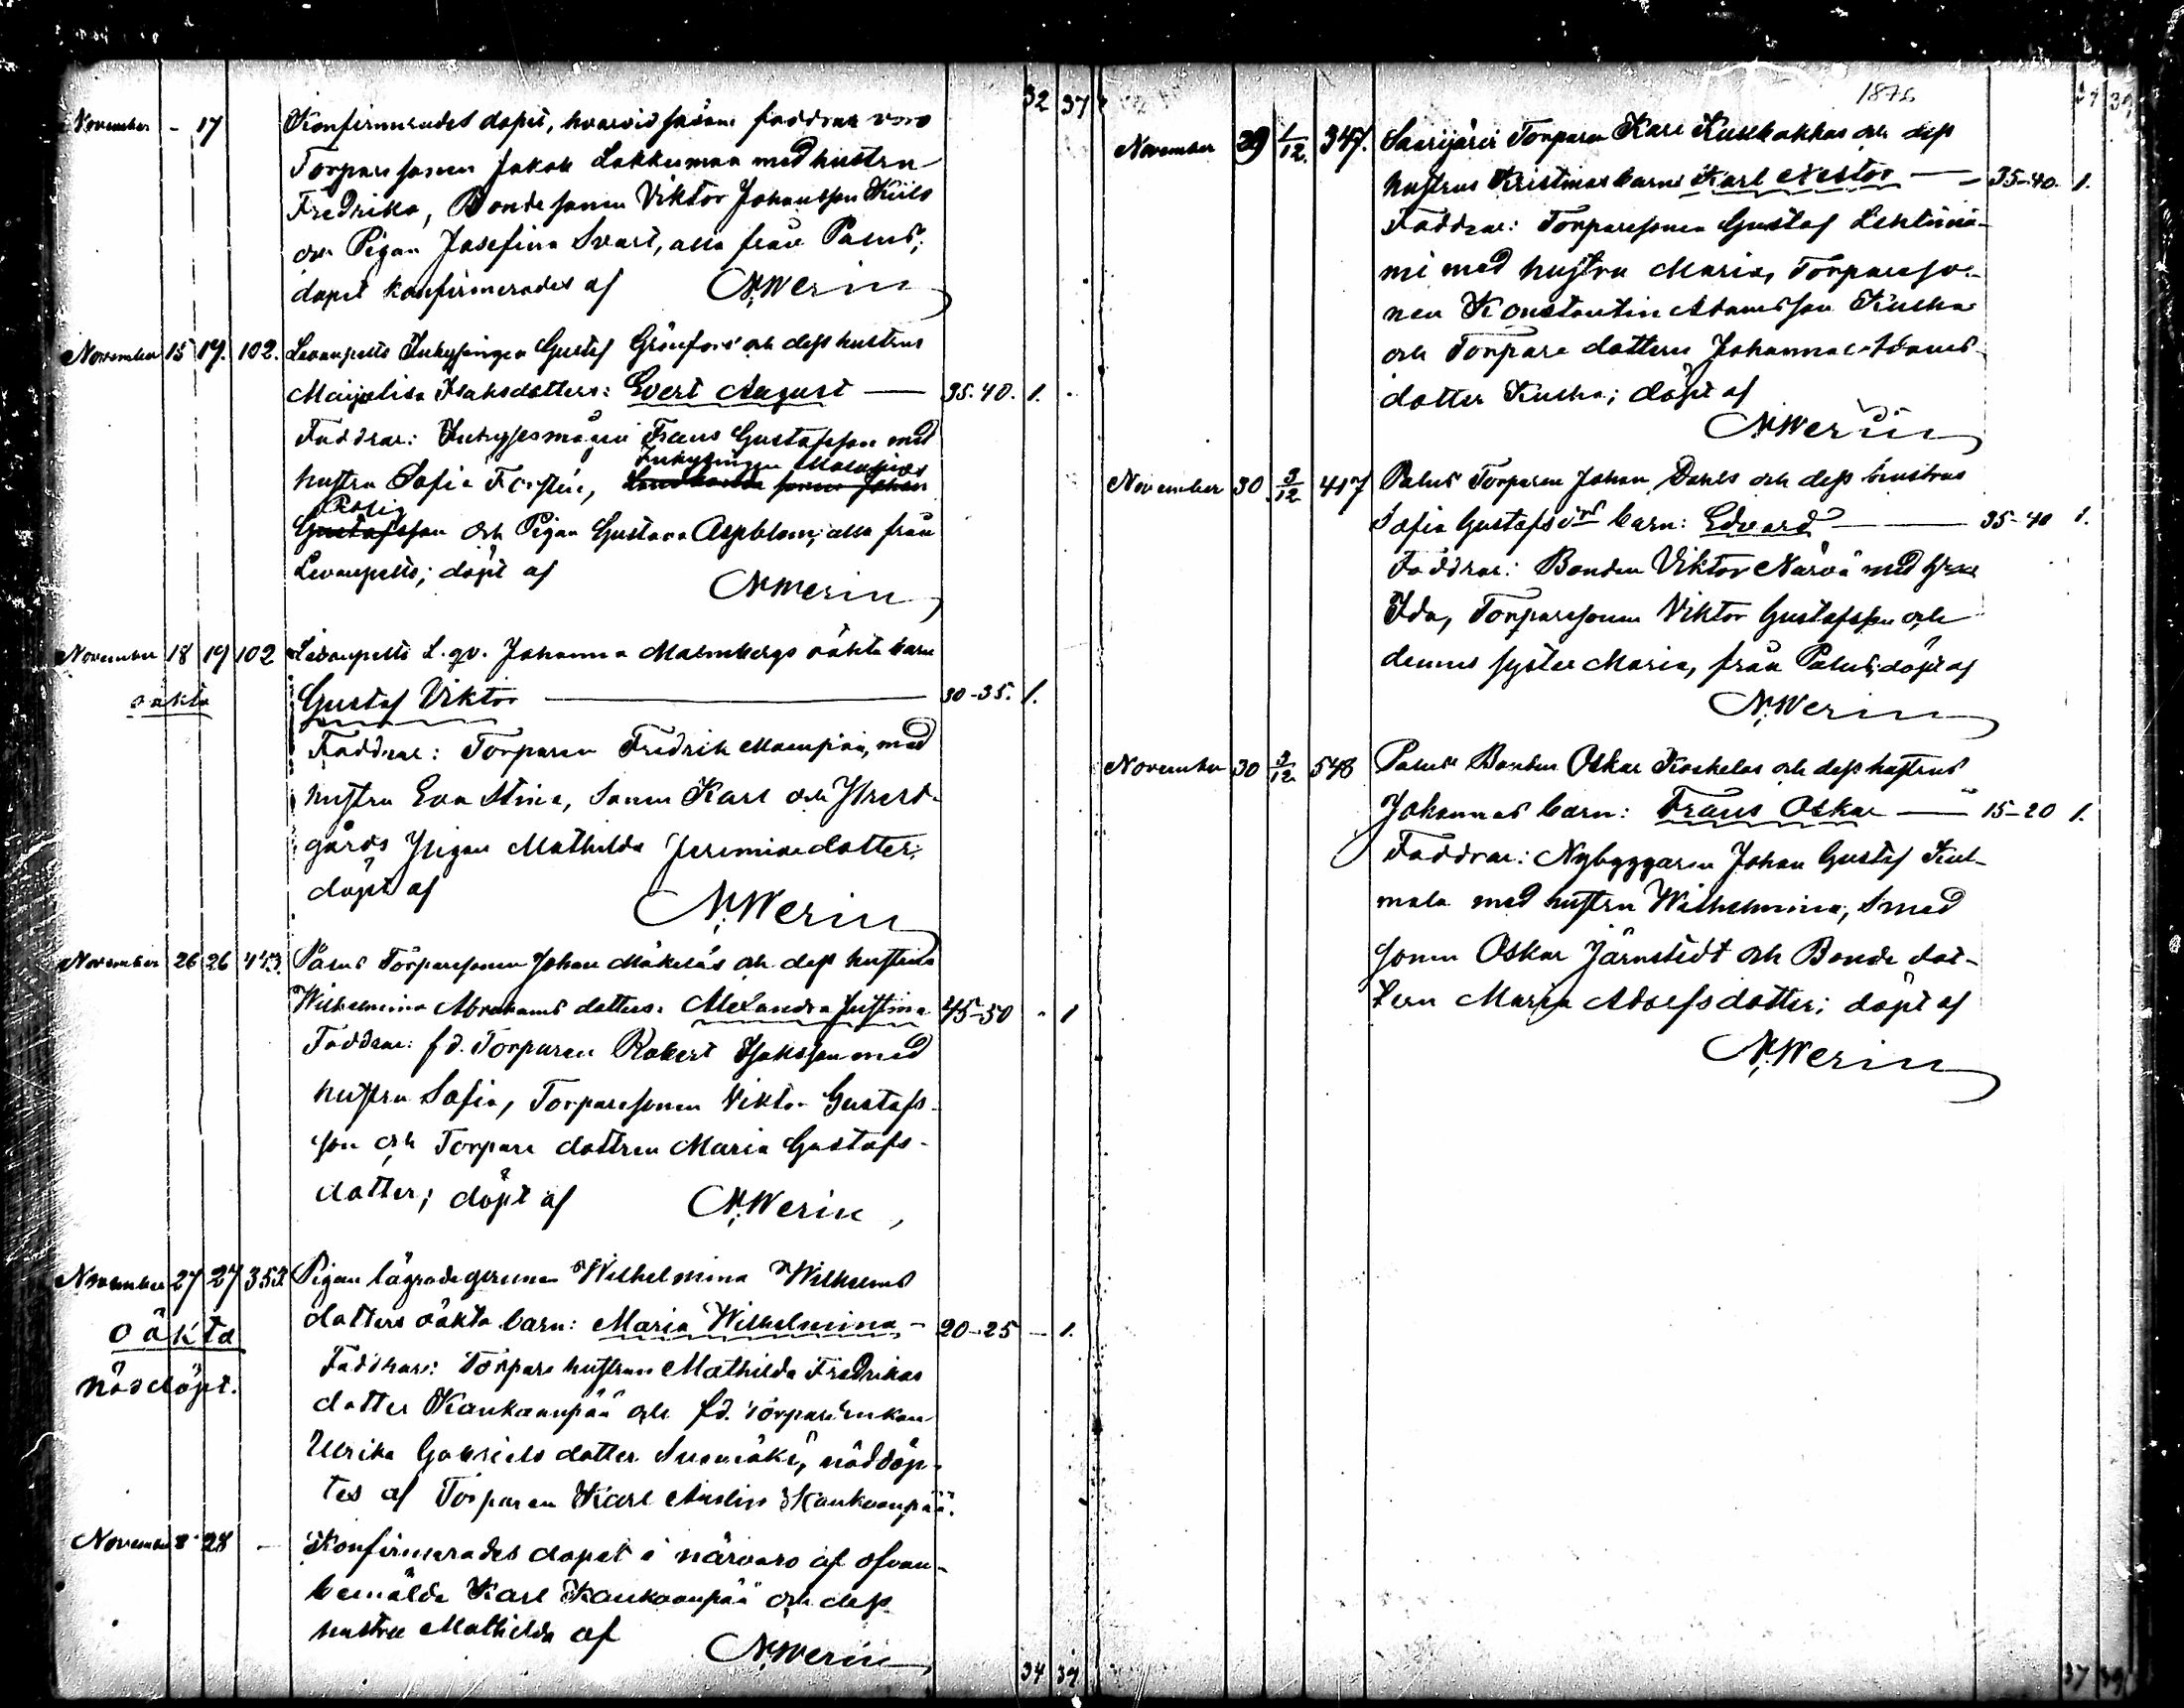 32 37
November - 17 Konfirmerades dopet, hvarvid såsom faddrar voro
Torparesonen Jakob Lakkuman med hustru
Fredrika, Bondesonen Viktor Johansson Kiils
och Pigan Josefina Svart, alla från Palus;
dopet konfirmerades af N. Werin
November 15 19. 102. Levanpelto Inhysingen Gustaf Grönfors' och dess hustrus
Maijalisa Isaksdotters: Evert August — 35.40. 1.
Faddrar: Inhysesmannen Frans Gustafsson med
Inhysingen
hustru Sofia Forstén, Landbonde sonen Johan
Gustafsson och Pigan Gustava Aspblom, alla från
Levanpelto; döpt af N. Werin
November 18 19 102 Levanpelto L. qv. Johanna Malmbergs oäkta barn
oäkta Gustaf Viktor — 30-35. 1.
Faddrar: Torparen Fredrik med
hustru Eva Stina, Sonen Karl och
gårds Pigan Mathilda Jeremiædotter;
döpt af N. Werin
November 26 26 443. Palus Torparesonen Johan Mäkeläs och dess hustrus
Wilhelmina Abrahams dotters: Alexandra Justina 45-50 - 1
Faddrar: fd. Torparen Robert Isaksson med
hustru Sofia, Torparesonen Viktor Gustafs-
son och Torpare dottren Maria Gustafs-
dotter; döpt af N. Werin
November 27 27 353. Pigan lägrade qvinnan Wilhelmina Wilhelms
oäkta dotters oäkta barn: Maria Wilhelmina - 20-25 - 1.
nöddöpt. Faddrar: Torpare hustrun Mathilda Fredrikas
dotter Kankaanpää och fd. Torpare enkan
Ulrika Gabriels dotter nöddöp-
tes af Torparen Karl Kankaanpää.
November 28 - Konfirmerades dopet i närvaro af ofvan-
bemälde Karl Kankaanpää och dess
hustru Mathilda af N. Werin
34 39
1876
November 29 1/12. 347. Saarijärvi Torparen Karl och dess
hustrus Kristinas barn: Karl Nestor — 35-40. 1.
Faddrar: Torparesonen Gustaf Lehtinie-
mi med hustru Maria, Torpareso-
nen Konstantin Adamsson Kucha
och Torpare dottern Johanna Adams-
dotter Kucha; döpt af
N. Werin
November 30 3/12 417 Palus Torparen Johan Dahls och dess hustrus
Sofia Gustafsd:rs barn: Edvard — 35-40 1.
Faddrar: Bonden Viktor Närvä med
Ida, Torparesonen Viktor Gustafsson och
dennes syster Maria, från Palus; döpt af
N. Werin
November 30 3/12 548 Palus Bonden Oskar Koskelas och dess hustrus
Johannas barn: Frans Oskar — 15-20 1.
Faddrar: Nybyggaren Johan Gustaf Kul-
mala med hustru Wilhelmina, Smed
sonen Oskar Järnstedt och Bonde dot-
tern Maria Adolfsdotter; döpt af
N. Werin
37 39